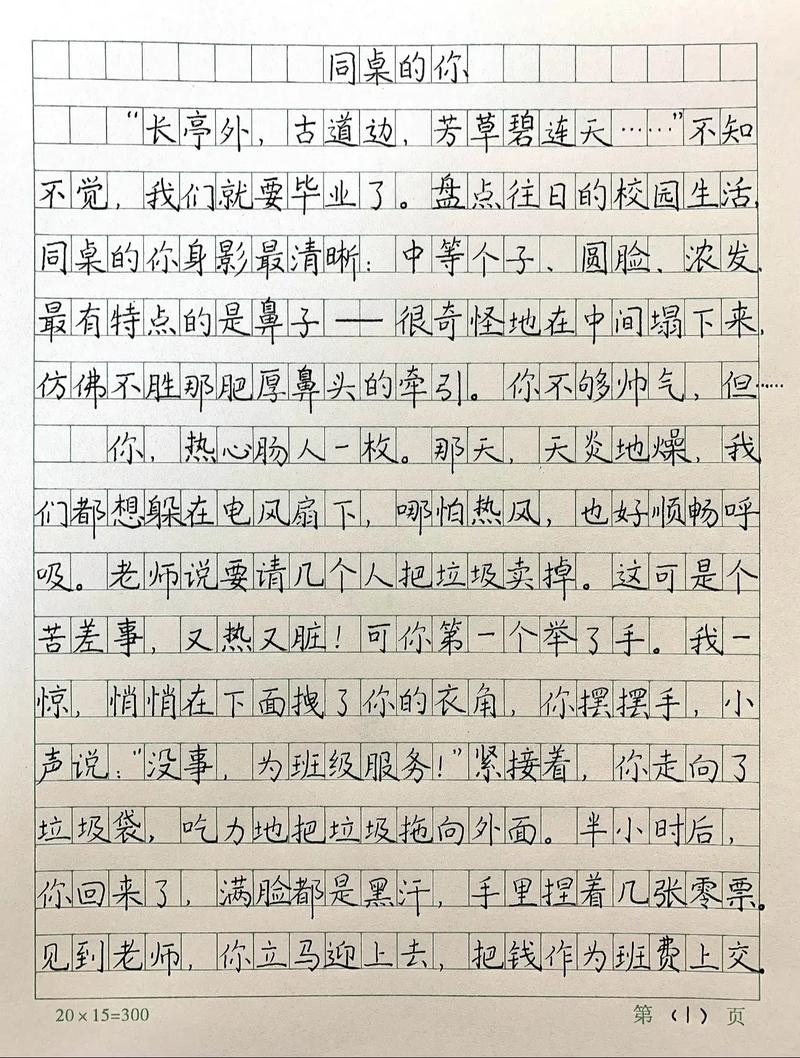 同桌的你
“长亭外，古道边，芳草碧连天……”不知
不觉，我们就要毕业了。盘点往日的校园生活，
同桌的你身影最清晰：中等个子、圆脸、浓发，
最有特点的是鼻子——很奇怪地在中间塌下来，
仿佛不胜那肥厚鼻头的牵引。你不够帅气，但……
你，热心肠人一枚。那天，天炎地燥，我
们都想躲在电风扇下，哪怕热风，也好顺畅呼
吸。老师说要请几个人把垃圾卖掉。这可是个
苦差事，又热又脏！可你第一个举了手。我一
惊，悄悄在下面拽了你的衣角，你摆摆手，小
声说：“没事，为班级服务！”紧接着，你走向了
垃圾袋，吃力地把垃圾拖向外面。半小时后，
你回来了，满脸都是黑汗，手里捏着几张零票。
见到老师，你立马迎上去，把钱作为班费上交。
20×15=300 第（1）页